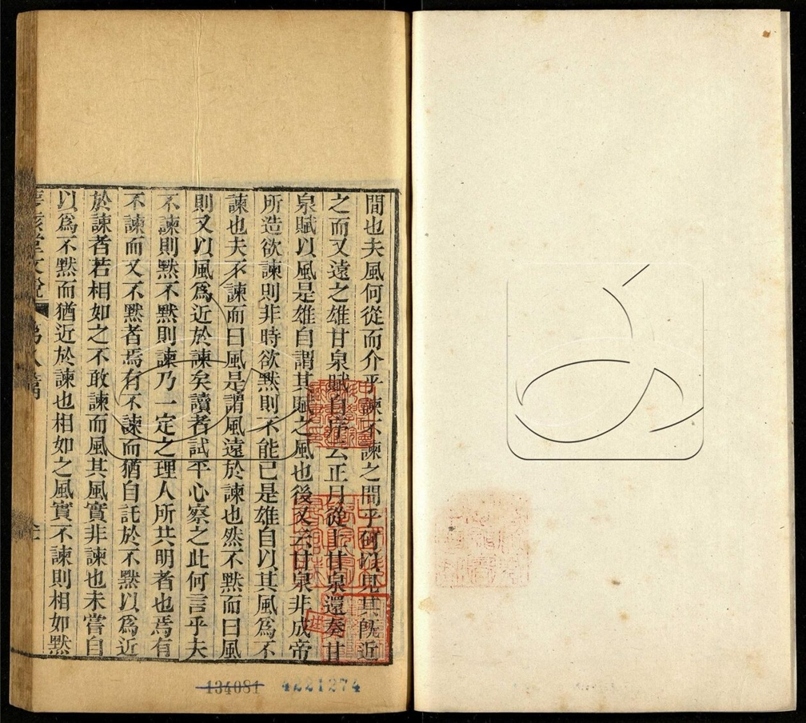 間也夫風何從而介乎諫不諫之間乎何以見其既近
之而又遠之雄甘泉賦自序云正月從上甘泉還奏甘
泉賦以風是雄自謂其賦之風也後又云甘泉非成帝
所造欲諫則非時欲默則不能已是雄自以其風為不
諫也夫不諫而曰風是謂風遠於諫也然不默而曰風
則又以風為近於諫矣讀者試平心察之此何言乎夫
不諫則默不默則諫乃一定之理人所共明者也焉有
不諫而又不默者焉有不諫而猶自託於不默以為近
於諫者若相如之不敢諫而風其風實非諫也未嘗自
以為不默而猶近於諫也相如之風實不諫則相如默
堂文說 第八篇
134081 4221274